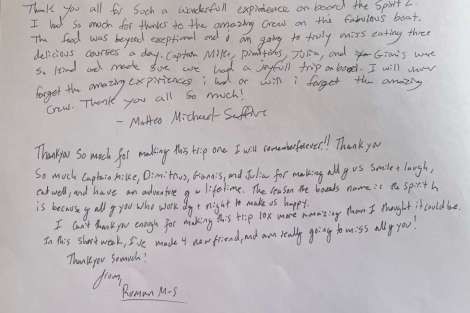 Thank you all for Such a wonderfull expirience on board the Spirit L.
I had so much fun thanks to the amazing Crew on this fabulous boat.
The food was beyond exceptional and i am going to truly miss eating three
delicious courses a day. Captain Mike, Dimitrios, Julia, and Gianis were
so kind and made sure we had a joyfull trip onboard. I will never
forget the amazing expiriences i had or will i forget the amazing
Crew. Thank you all so much!
- Matteo Michael
Thankyou so much for making this trip one I will rememberforever!! Thank you
So much Captain Mike, Dimitrius, Giannis, and Julia for making all of us smile + laugh,
eat well, and have an adventure of a lifetime. The reason the boats name is the spirit L
is because of all of you who work day + night to make us happy.
I can't thankyou enough for making this trip 10x more amazing than I thought it could be.
In this short week, I've made 4 new friend, and am really going to miss all of you!
Thankyou so much!
from,
Roman M-S